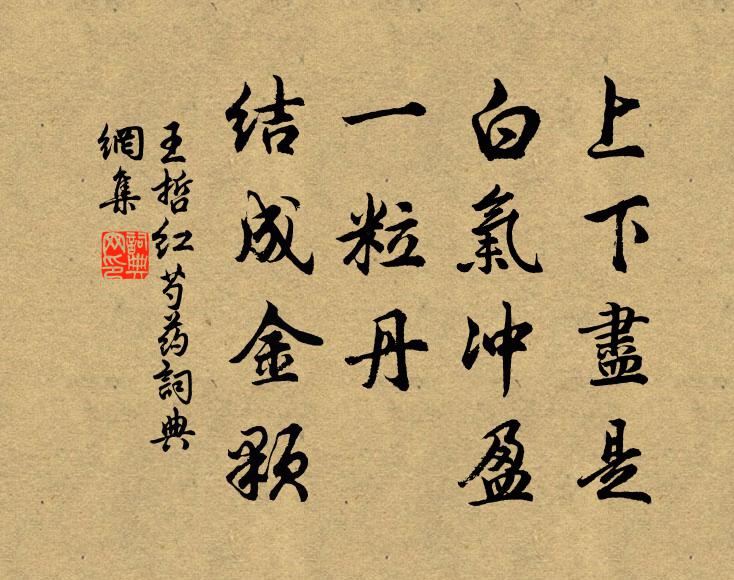 上下盡是
白氣冲盈
一粒丹
结成金顆
王哲红芍药詞典
網集
詞典
网印